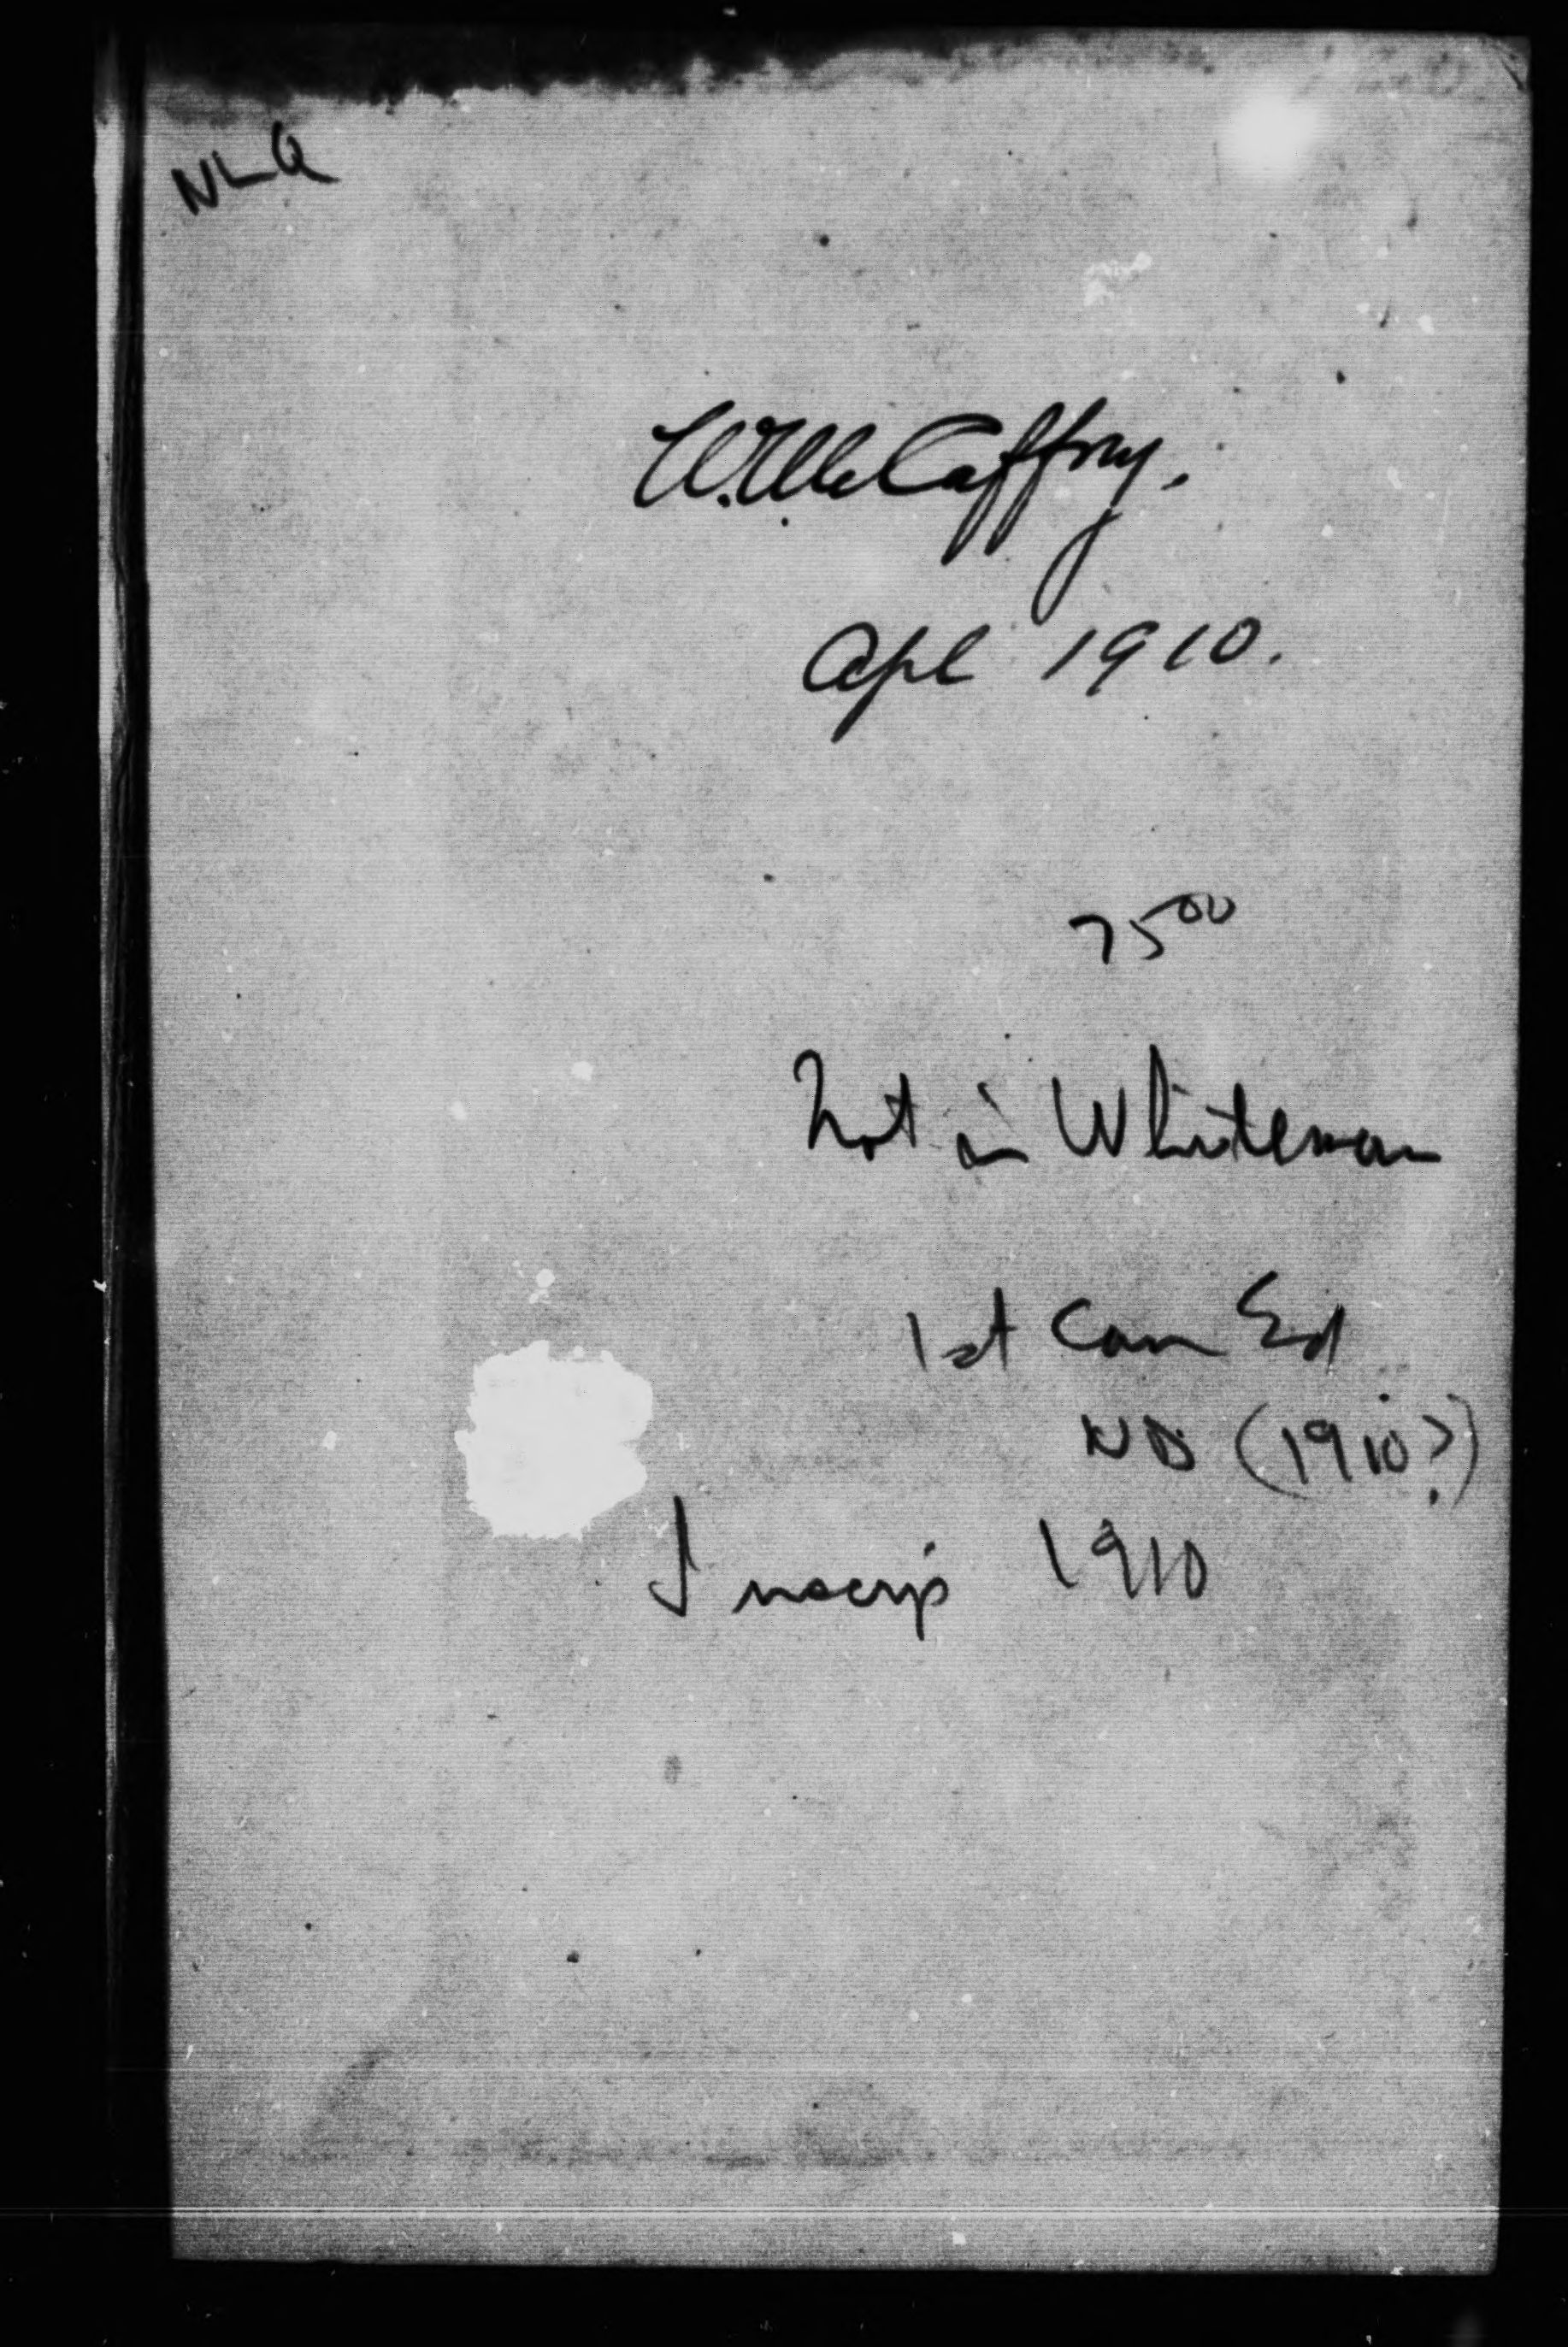 NLQ
W. McCaffrey.
Apl 1910.
75 00
Not in Whiteman
1st Can Ed
ND (1910?)
Inscrip 1910